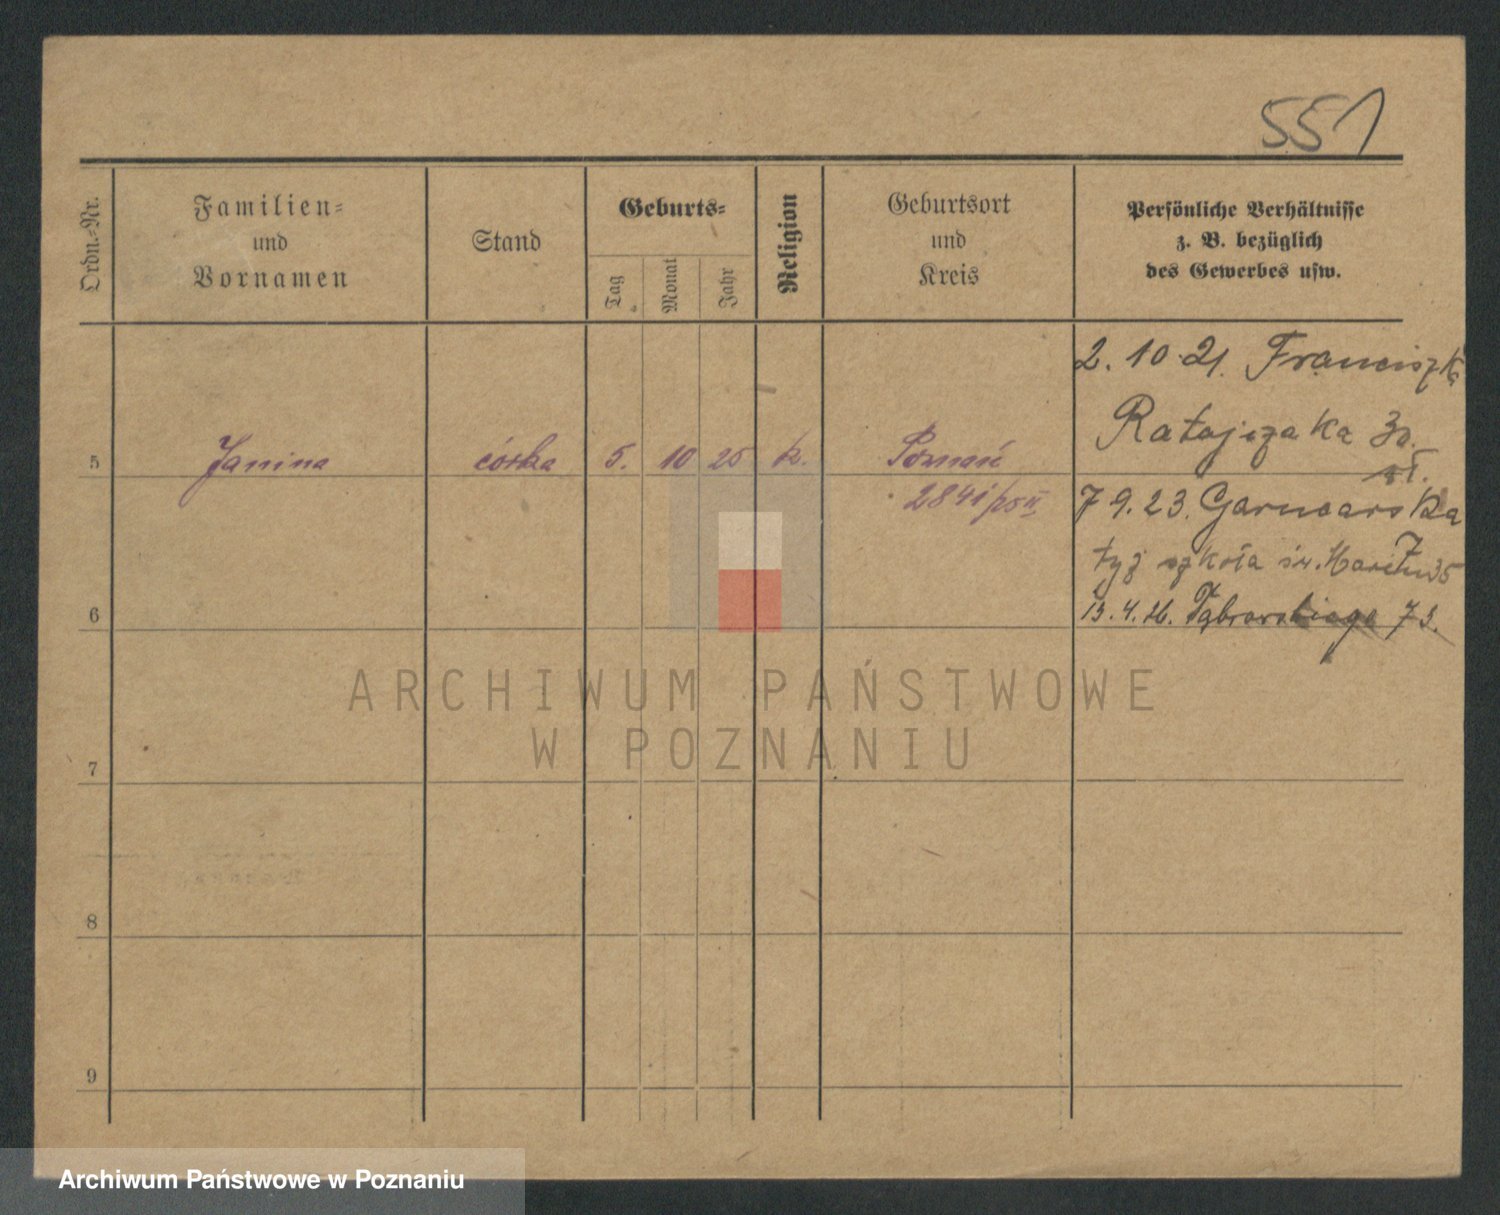 551
Ordn.-Nr.
Familien-
und
Vornamen
Stand
Geburts-
Tag
Monat
Jahr
Religion
Geburtsort
und
Kreis
Persönliche Verhältnisse
z. B. bezüglich
des Gewerbes usw.
2. 10. 21. Franciszka
Ratajczaka
5 Janina córka 5. 10 25 k. Poznań
7 9. 23. Garncarska
szkoła św.
6 13. 4. 26. 73.
ARCHIWUM PAŃSTWOWE
W POZNANIU
7
8
9
Archiwum Państwowe w Poznaniu